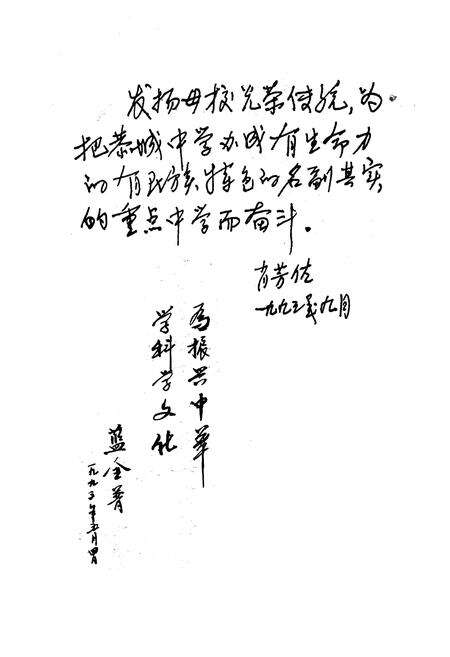 发扬母校光荣传统，为
把恭城中学办成有生命力
的有民族特色的名副其实
的重点中学而奋斗。
肖芳佐
一九九三年九月
为振兴中华
学科学文化
蓝全普
一九九三年五月四日